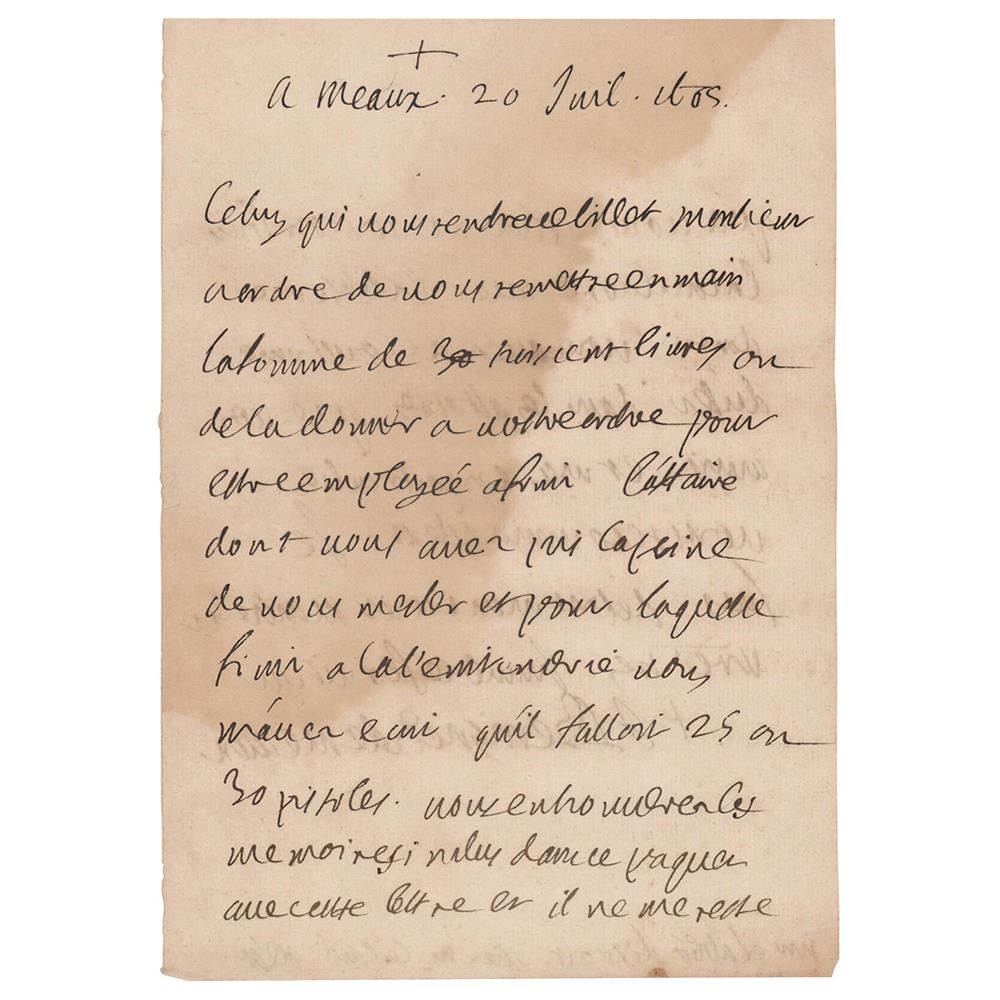 +
a meaux. 20 Juil.
Celuy qui vous rendra ce billet monsieur
a ordre de vous remettre en main
la somme de cent livres ou
de la donner a vostre ordre pour
estre employeé a finir l'affaire
dont vous avez pris la peine
de vous mesler et pour laquelle
finir a
m'avez ecrit qu'il falloit 25 ou
30 pistoles. vous en trouverez les
memoires inclus dans ce paquet
avec cette lettre et il ne me reste